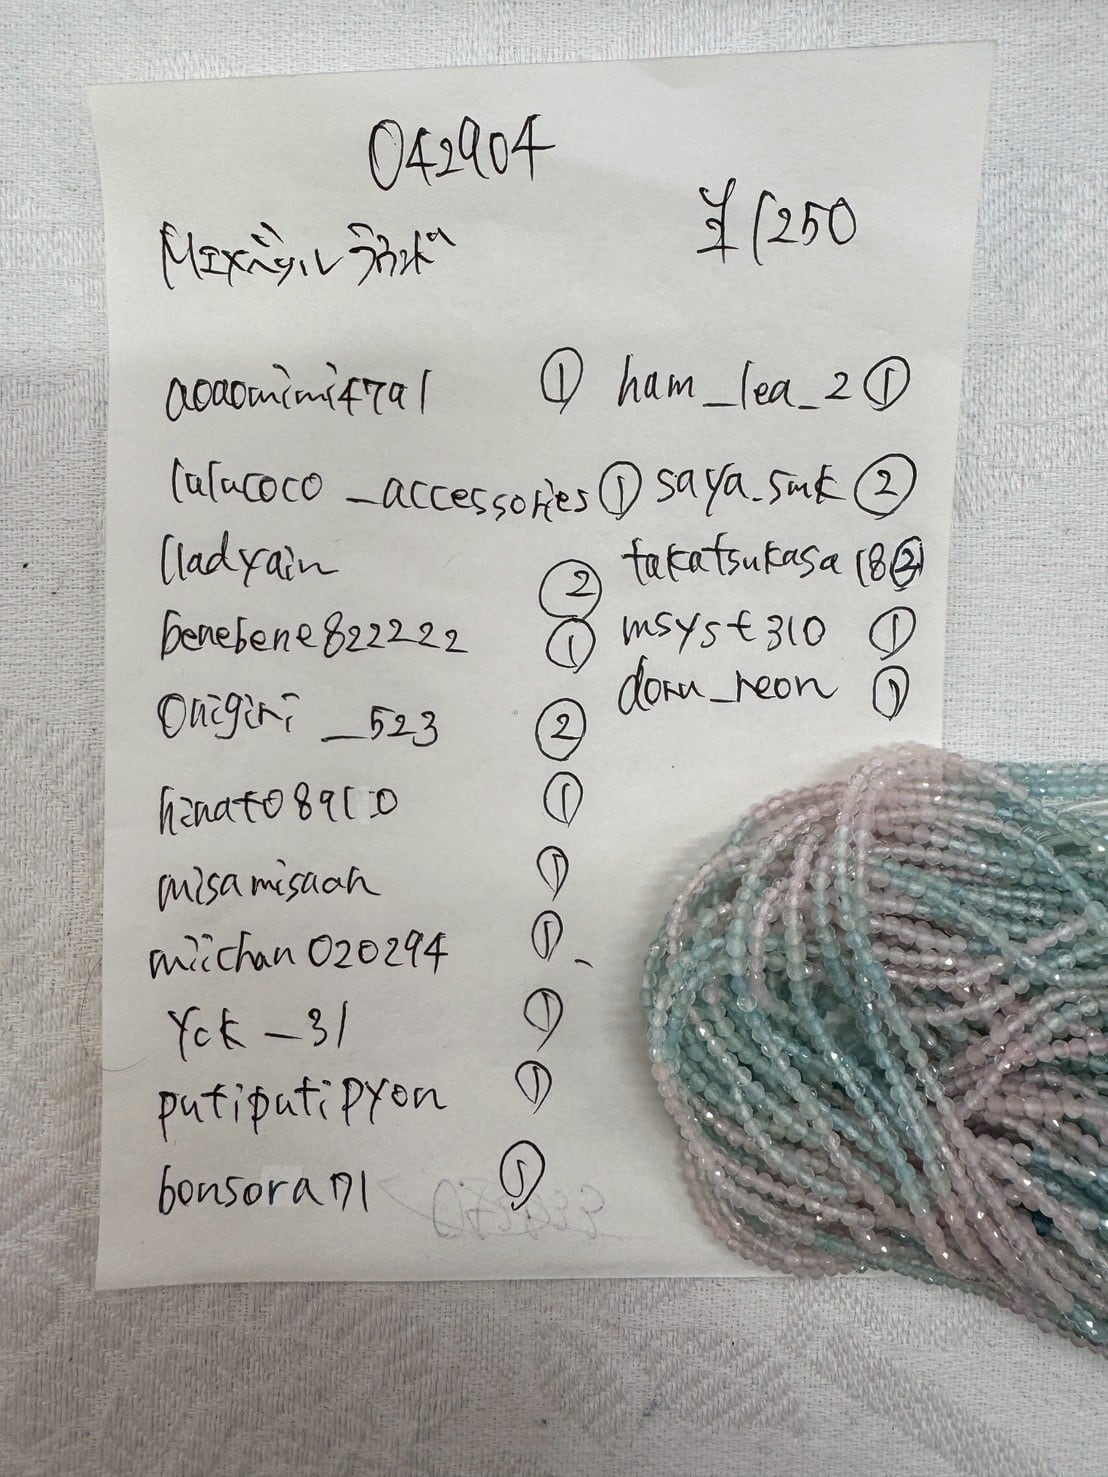 042904
MIXベリルラウンド
¥1250
aoaomimi4791 ①
lulucoco_accessories ①
lladyain ②
benebene822222 ①
onigiri_523 ②
hinato8910 ①
misamisaah ①
miichan020294 ①
yck_31 ①
putiputipyon ①
bonsora71 ①
ham_lea_2 ①
saya.smk ②
takatsukasa18 ②
msyst310 ①
doru_reon ①